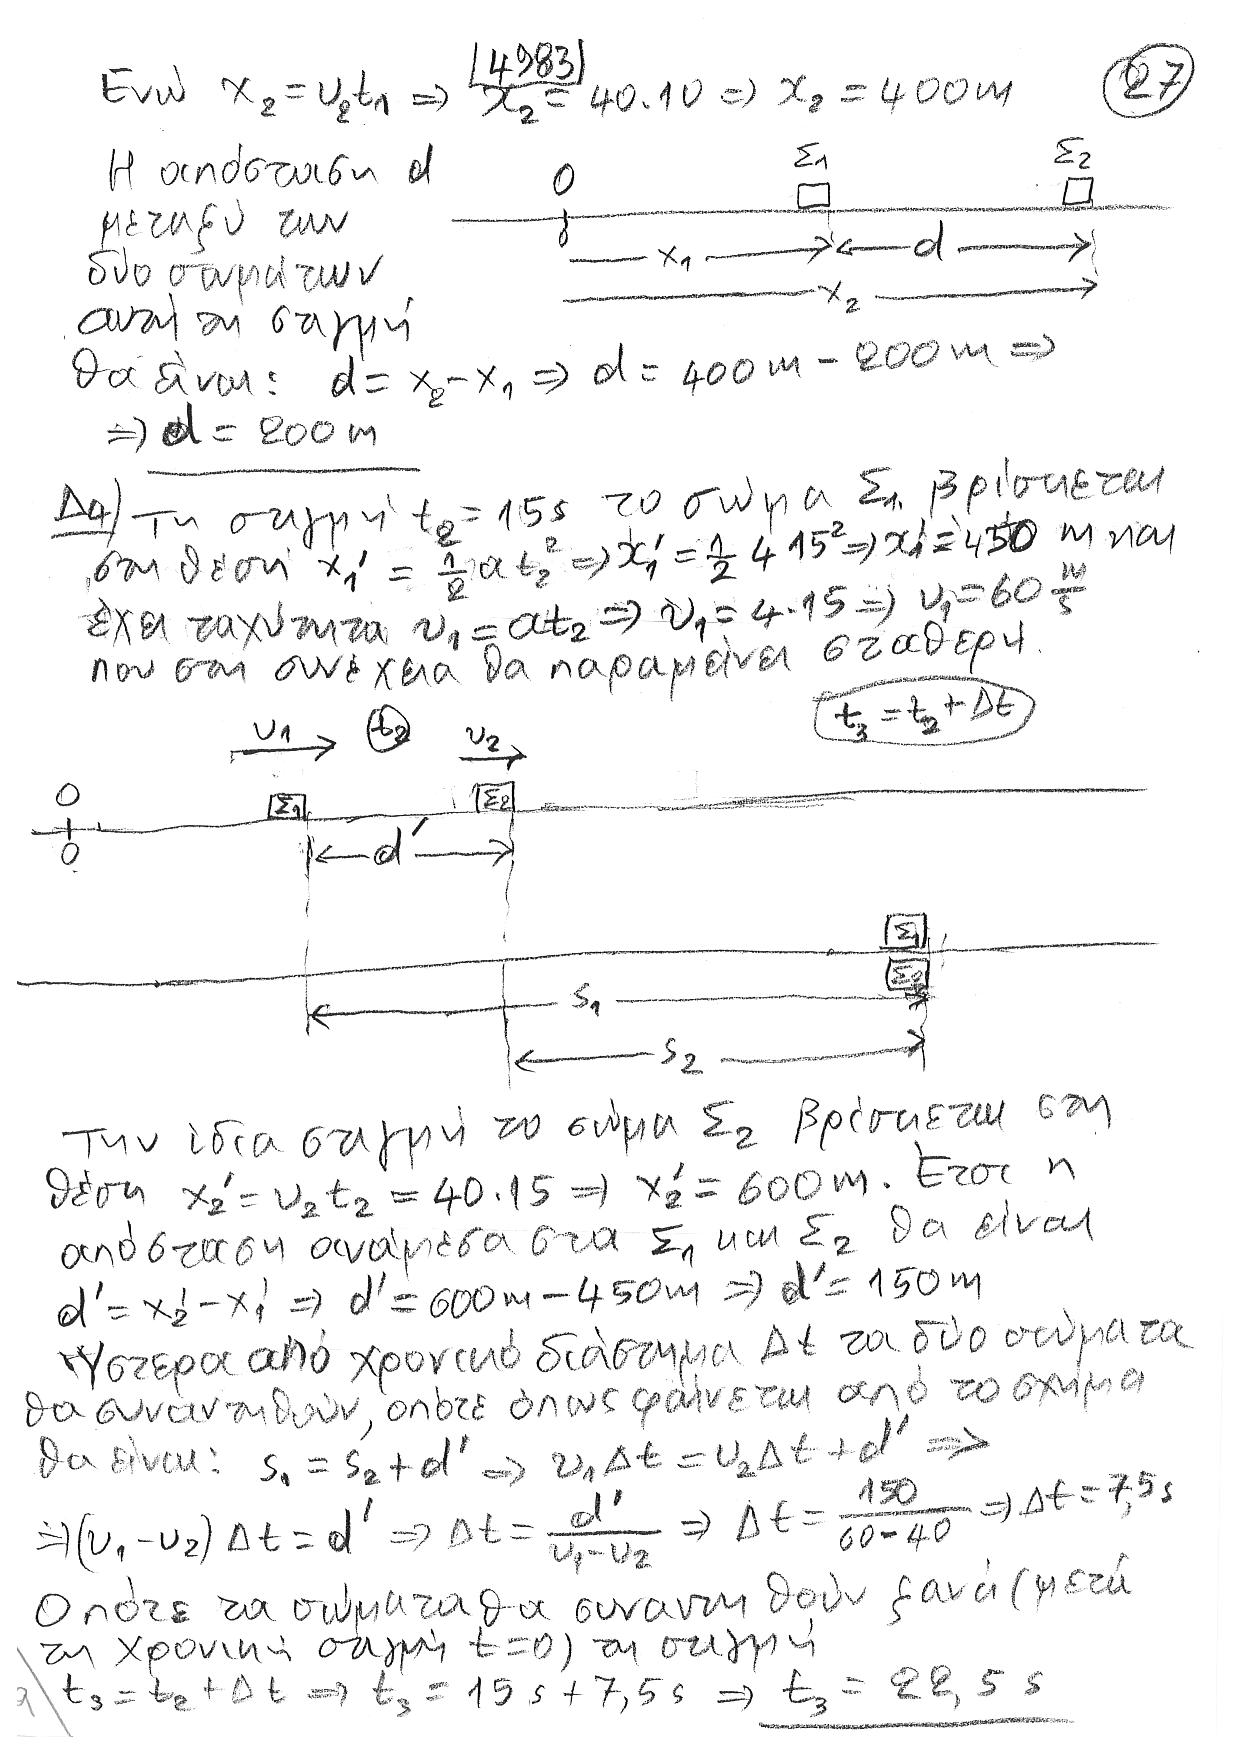 |4983|
Ενώ x₂ = υ₂t₁ ⇒ x₂ = 40.10 ⇒ x₂ = 400m
27
Η απόσταση d
μεταξύ των
δύο σωμάτων
αυτή τη στιγμή
θα είναι: d = x₂ - x₁ ⇒ d = 400m - 200m ⇒
⇒ d = 200m
O Σ₁ Σ₂
x₁ d
x₂
Δ4) Τη στιγμή t₂ = 15s το σώμα Σ₁ βρίσκεται
στη θέση x₁' = 1/2 a t₂² ⇒ x₁' = 1/2 4 15² ⇒ x₁' = 450 m και
έχει ταχύτητα υ₁ = at₂ ⇒ υ₁ = 4.15 ⇒ υ₁ = 60 m/s
που στη συνέχεια θα παραμείνει σταθερή.
t₃ = t₂ + Δt
υ₁ t₂ υ₂
O Σ₁ Σ₂
O d'
Σ₁
Σ₂
s₁
s₂
Την ίδια στιγμή το σώμα Σ₂ βρίσκεται στη
θέση x₂' = υ₂t₂ = 40.15 ⇒ x₂' = 600m. Έτσι η
απόσταση ανάμεσα στα Σ₁ και Σ₂ θα είναι
d' = x₂' - x₁' ⇒ d' = 600m - 450m ⇒ d' = 150m
Ύστερα από χρονικό διάστημα Δt τα δύο σώματα
θα συναντηθούν, οπότε όπως φαίνεται από το σχήμα
θα είναι: s₁ = s₂ + d' ⇒ υ₁Δt = υ₂Δt + d' ⇒
⇒ (υ₁ - υ₂) Δt = d' ⇒ Δt = d'/(υ₁ - υ₂) ⇒ Δt = 150/(60 - 40) ⇒ Δt = 7,5s
Οπότε τα σώματα θα συναντηθούν ξανά (μετά
τη χρονική στιγμή t = 0) τη στιγμή
t₃ = t₂ + Δt ⇒ t₃ = 15s + 7,5s ⇒ t₃ = 22,5 s